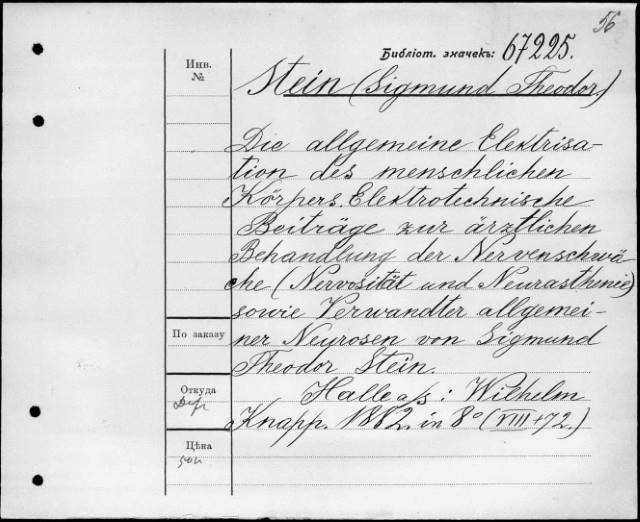 56
Библіот. значекъ: 67225.
Инв.
№
Stein (Sigmund Theodor.)
Die allgemeine Elektrisa-
tion des menschlichen
Körpers. Elektrotechnische
Beiträge zur ärztlichen
Behandlung der Nervenschwä-
che (Nervosität und Neurasthenie)
sowie Verwandter allgemei-
ner Neurosen von Sigmund
Theodor Stein.
Halle a/s: Wilhelm
Knapp. 1882. in 8° (VIII+72.)
По заказу
Откуда
Цѣна